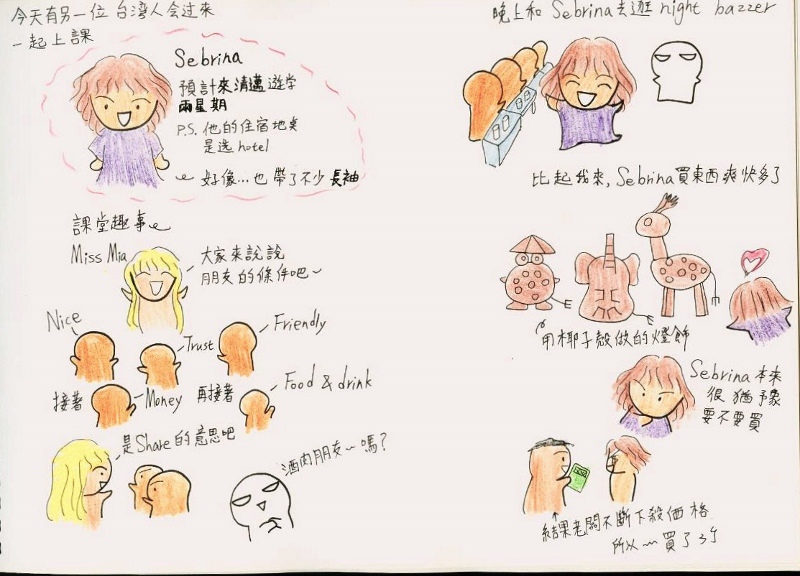 今天有另一位台灣人会过來
一起上課
Sebrina
預計來清邁遊学
兩星期
P.S. 他的住宿地点
是选 hotel
好像...也帶了不少長袖
課堂趣事
Miss Mia
大家來說說
朋友的條件吧~
Nice
Trust
Friendly
接著
Money
再接著
Food & drink
是Share的意思吧
酒肉朋友~嗎?
晚上和 Sebrina去遊 night bazzer
比起我來, Sebrina買東西爽快多了
用椰子殼做的燈飾
Sebrina本來
很猶豫
要不要買
結果老闆不斷下殺價格
所以~買了3个